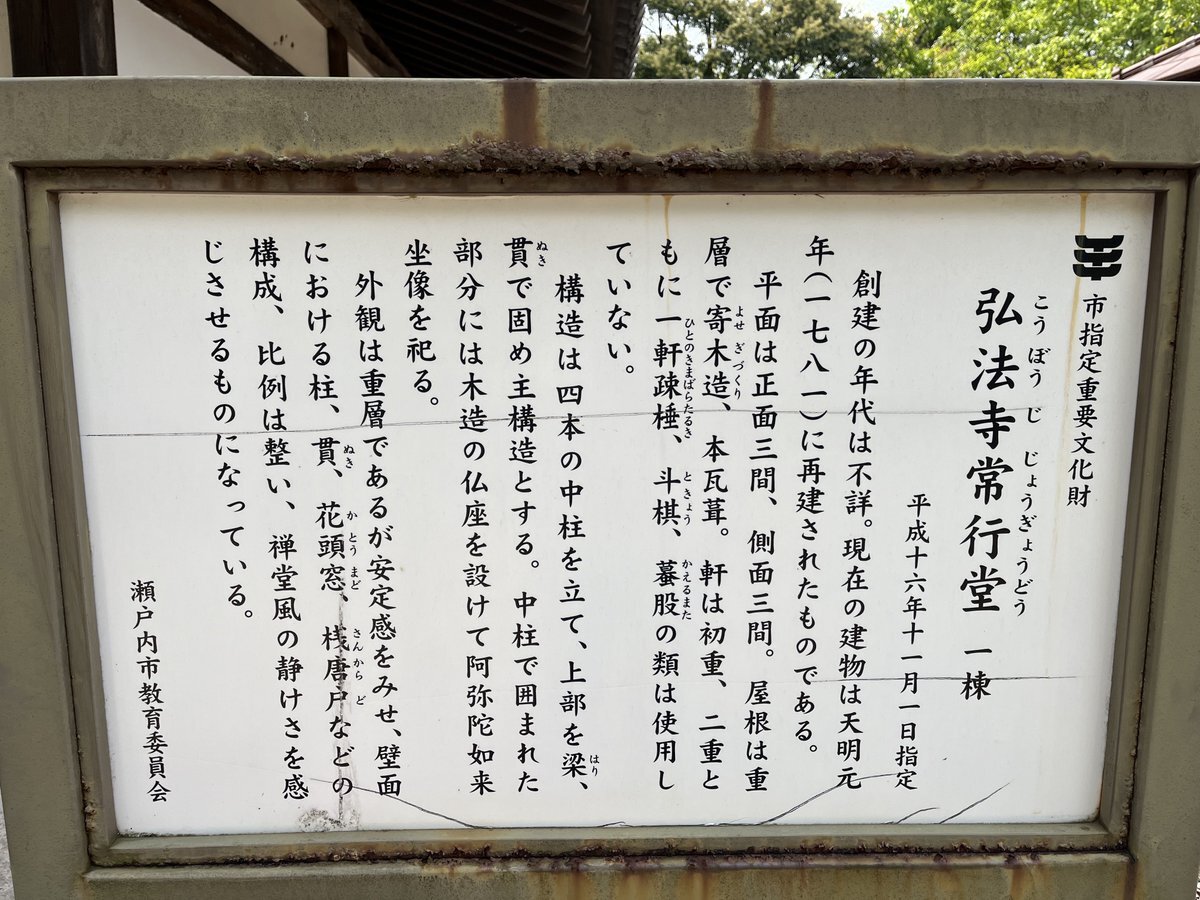 市指定重要文化財
こうぼうじじょうぎょうどう
弘法寺常行堂 一棟
平成十六年十一月一日指定
創建の年代は不詳。現在の建物は天明元
年(一七八一)に再建されたものである。
平面は正面三間、側面三間。屋根は重
層で寄木造、本瓦葺。軒は初重、二重と
よせぎづくり
もに一軒疎棰、斗栱、蟇股の類は使用し
ひとのきまばらたるき ときょう かえるまた
ていない。
構造は四本の中柱を立て、上部を梁、
はり
貫で固め主構造とする。中柱で囲まれた
ぬき
部分には木造の仏座を設けて阿弥陀如来
坐像を祀る。
外観は重層であるが安定感をみせ、壁面
における柱、貫、花頭窓、桟唐戸などの
ぬき かとうまど さんからど
構成、比例は整い、禅堂風の静けさを感
じさせるものになっている。
瀬戸内市教育委員会